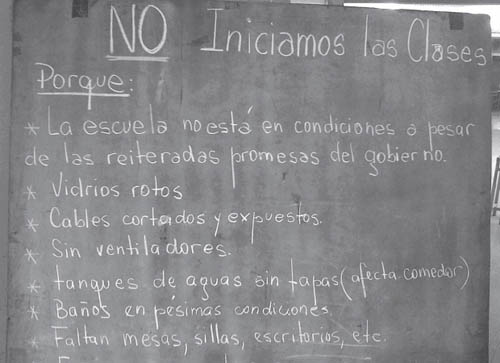 NO Iniciamos las Clases
Porque:
* La escuela no está en condiciones a pesar
de las reiteradas promesas del gobierno.
* Vidrios rotos
* Cables cortados y expuestos.
* Sin ventiladores.
* tanques de aguas sin tapas (afecta comedor)
* Baños en pésimas condiciones.
* Faltan mesas, sillas, escritorios, etc.